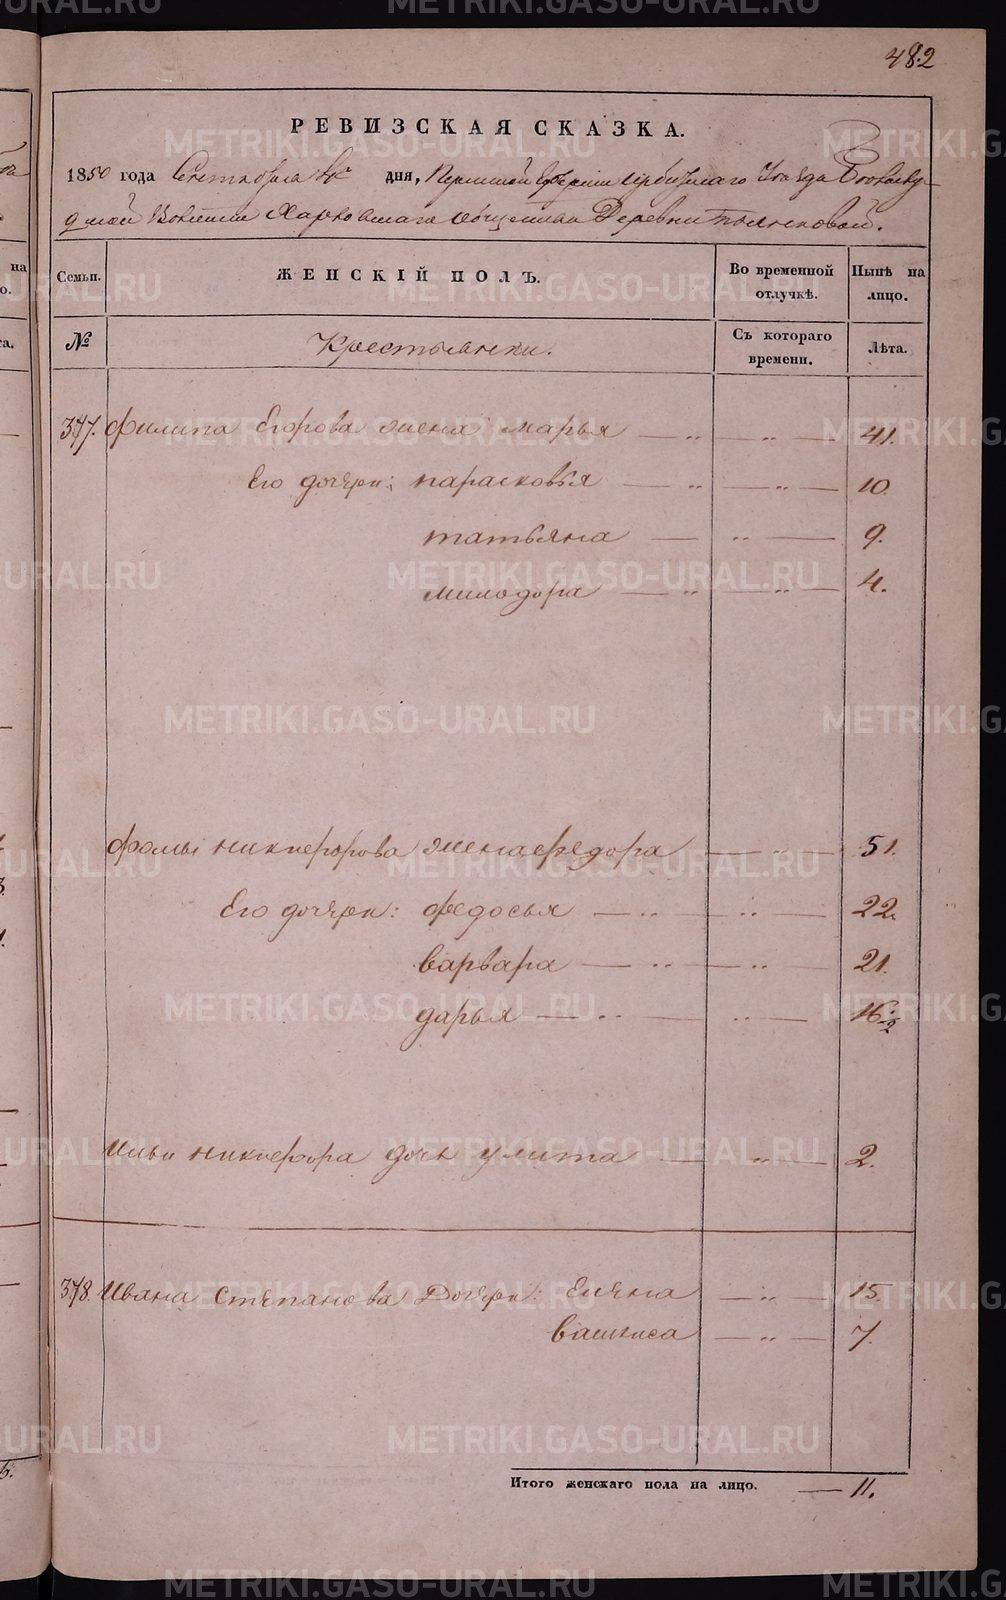 482
РЕВИЗСКАЯ СКАЗКА.
1850 года Сентября 4го дня, Пермской Губернии Ирбитскаго Уезда
Волости Харловскаго общества Деревни
Семьи. ЖЕНСКІЙ ПОЛЪ. Во временной отлучкѣ. Нынѣ на лицо.
№ Крестьянки. Съ котораго времени. Лѣта.
377. Филипа Егорова жена Марья — „ — „ — 41.
Его дочери: Парасковья — „ — „ — 10.
Татьяна — „ — 9.
Милодора — „ — „ — 4.
Фомы Никифорова жена Федора — „ — 51.
Его дочери: Федосья — „ — „ — 22.
Варвара — „ — „ — 21.
Дарья — „ — „ — 16.
Ильи Никифора дочь Улита — „ — 2.
378. Ивана Степанова Дочери: Елена — „ — 15.
Вашиса — „ — 7.
Итого женскаго пола на лицо. — 11.
METRIKI.GASO-URAL.RU